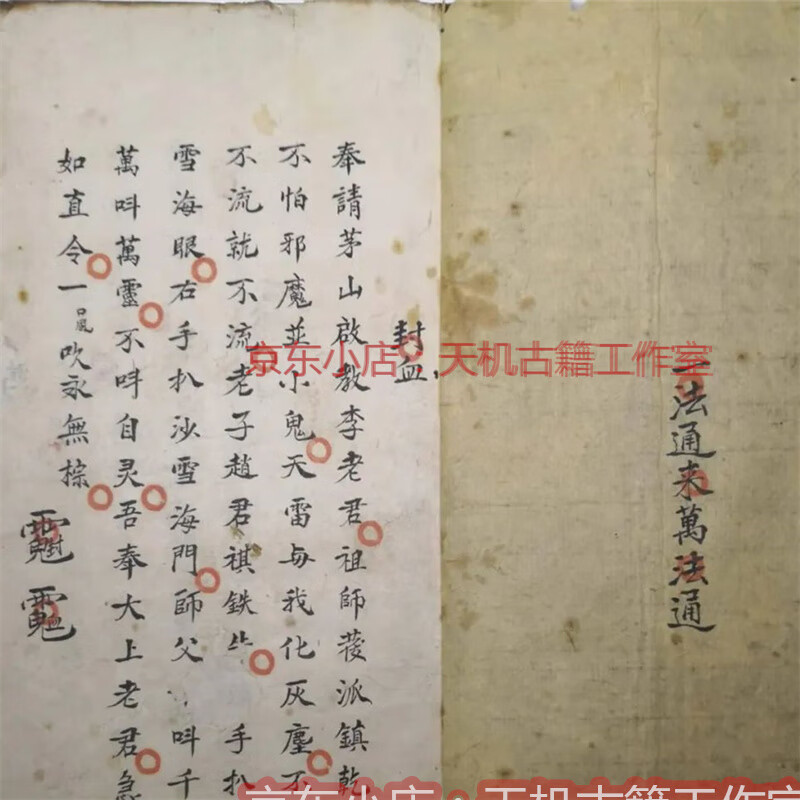 一法通来萬法通
封血
奉請茅山啟教李老君祖師派鎮乾
不怕邪魔並小鬼天雷与我化灰塵不
不流就不流老子趙君祺鉄 手扒
雪海眼右手扒沙雪海門師父 呌千
萬呌萬靈不呌自灵吾奉大上老君急
如直令一口風吹永無棕
京东小店：天机古籍工作室
京东小店：天机古籍工作室